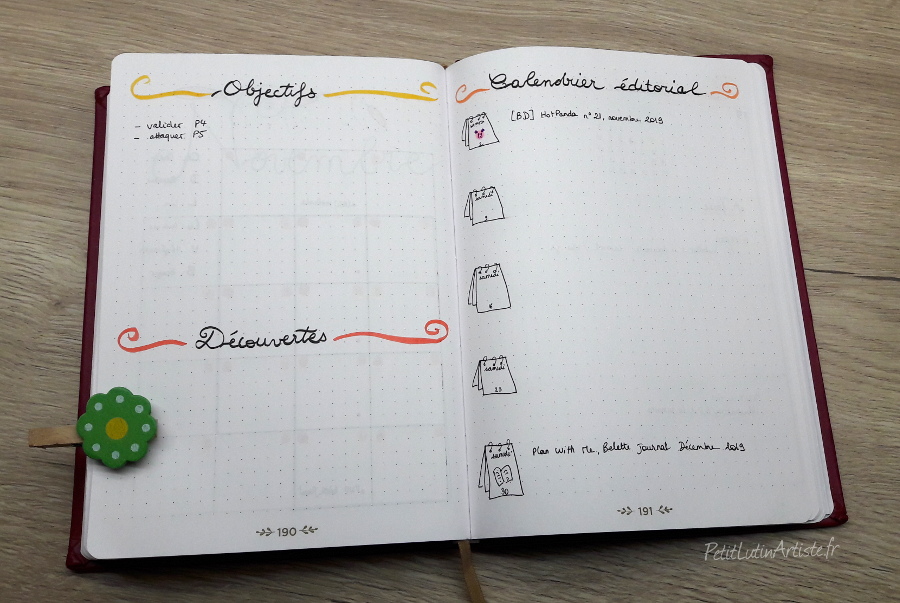 Objectifs
- valider P4
- attaquer P5
Découvertes
190
Calendrier éditorial
[BD] HotPanda n° 21, novembre 2019
samedi
samedi
samedi
23
samedi
30
Plan With Me, Belette Journal Décembre 2019
191
PetitLutinArtiste.fr